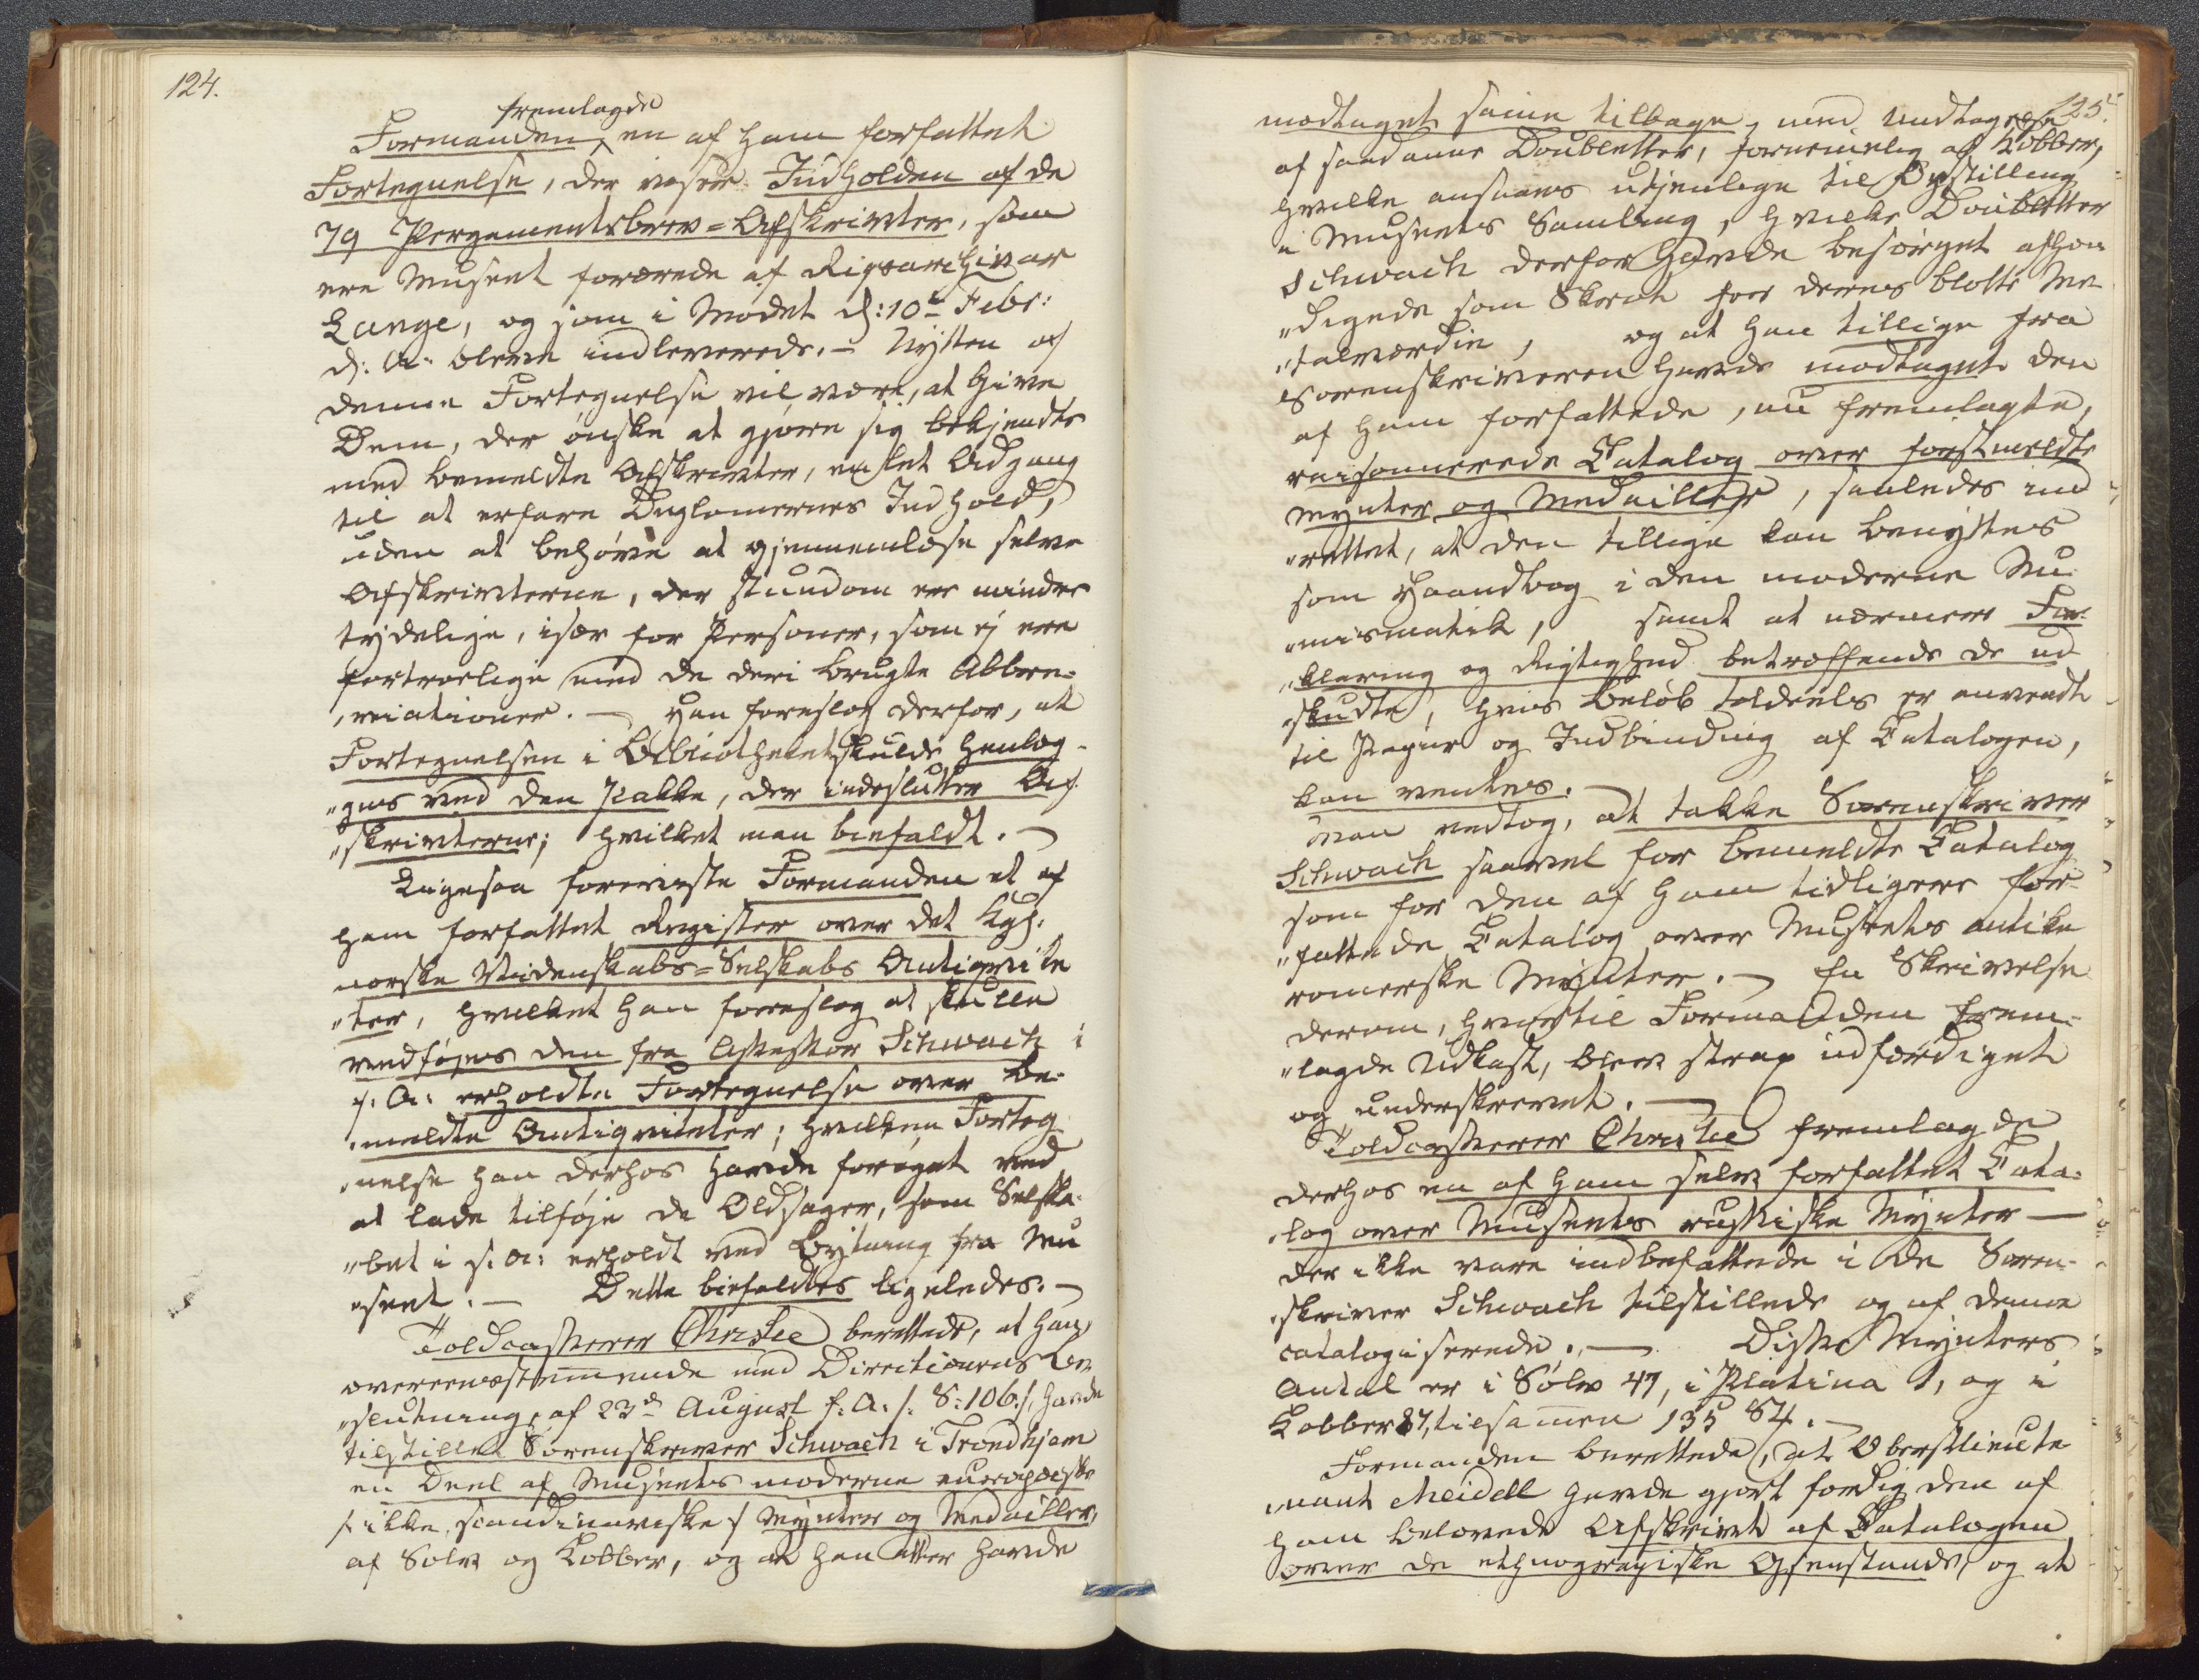 124.
fremlagde
Formanden, en af ham forfattet
Fortegnelse, der viser Indholden af de
79 Pergamentsbrev=Afskrivter, som
ere Museet forærede af Rigsarchivar
Lange, og som i Mødet d: 10de Febr:
d: A: bleve indleverede. – Nytten af
denne Fortegnelse vil være, at give
Dem, der ønske at gjøre sig bekjendte
med bemeldte Afskrivter, en let Adgang
til at erfare Diplomernes Indhold,
uden at behøve at gjennemlæse selve
Afskrivterne, der stundom ere mindre
tydelige, især for Personer, som ej ere
fortroelige med de deri brugte Abbre-
„viationer. – Han foreslog derfor, at
Fortegnelsen i Bibliotheket skulde henlæg-
„ges ved den Pakke, der indeslutter Af-
„skrivterne; hvilket man biefaldt. –
Ligesaa foreviiste Formanden et af
ham forfattet Register over det Kgl:
norske Videnskabs=Selskabs Antiqvite
„ter, hvilket han foreslog at skulle
vedføjes den fra Assessor Schwach i
f: A: erholdte Fortegnelse over be-
„meldte Antiqviteter; hvilken Forteg
„nelse han derhos havde forøget ved
at lade tilføje de Oldsager, som Selska-
„bet i f: A: erholdt ved Bytning fra Mu
„seet. – Dette biefaldtes ligeledes. –
Toldcasserer Christie berettede, at han,
overeensstemmende med Directionens Be-
„slutning, af 23de August f: A. /: S: 106:/, havde
tilstillet Sorenskriver Schwach i Trondhjem
en Deel af Museets moderne europæiske
/: ikke scandinaviske :/ Mynter og Medailler,
af Sølv og Kobber, og at han atter havde
125.
modtaget samme tilbage, med Undtagelse
af saadanne Doubletter, fornemmelig af Kobber,
hvilke ansaaes utjenlige til Opstilling
i Museets Samling, hvilke Doubletter
Schwach derfor havde besørget afhæn
„digede som Skrot for deres blotte Me-
„talværdie, og at han tillige fra
Sorenskriveren havde modtaget den
af ham forfattede, nu fremlagte,
raisonnerede Catalog over førstmeldte
Mynter og Medailler, saaledes ind
„rettet, at den tillige kan benyttes
som Haandbog i den moderne Nu-
„mismatik, samt at nærmere For-
„klaring og Rigtighed betræffende de ud
„skudte, hvis Beløb tildeels er anvendt
til Papiir og Indbinding af Catalogen,
kan ventes. –
Man vedtog, at takke Sorenskriver
Schwach saavel for bemeldte Catalog
som for den af ham tidligere for-
„fattede Catalog over Museets antike
romerske Mynter. – En Skrivelse
derom, hvortil Formanden frem-
„lagde Udkast, blev strax udfærdiget
og underskrevet. –
Toldcasserer Christie fremlagde
derhos en af ham selv forfattet Cata-
„log over Museets russiske Mynter –
der ikke vare indbefattede i de Soren-
„skriver Schwach tilstillede og af denne
catalogiserede. – Disse Mynters
Antal er i Sølv 47, i Platina 1, og i
Kobber 87, tilsammen 135 St. –
Formanden berettede, at Oberstlieute
„nant Meidell havde gjort færdig den af
ham belovede Afskrivt af Catalogen
over de ethnographiske Gjenstande, og at